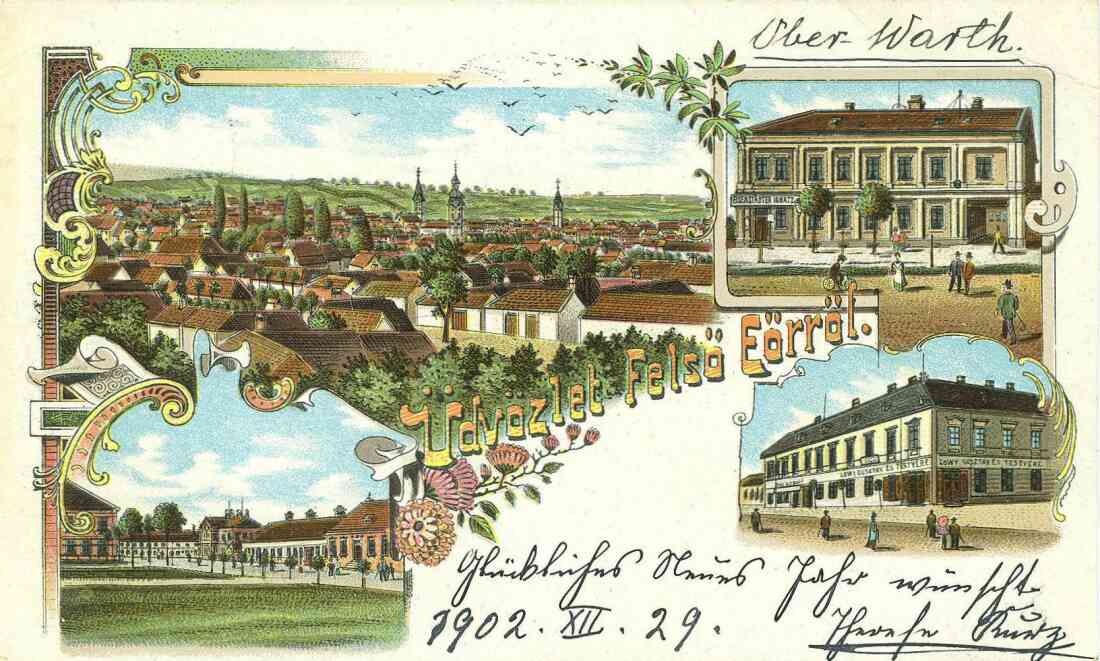 Ober-Warth.
Üdvözlet Felső Eörről.
LÖWY GUSZTÁV ÉS TESTVÉRE
LÖWY GUSZTÁV ÉS TESTVÉRE
Glückliches Neues Jahr wünscht
1902. XII. 29.
Therese Kurz